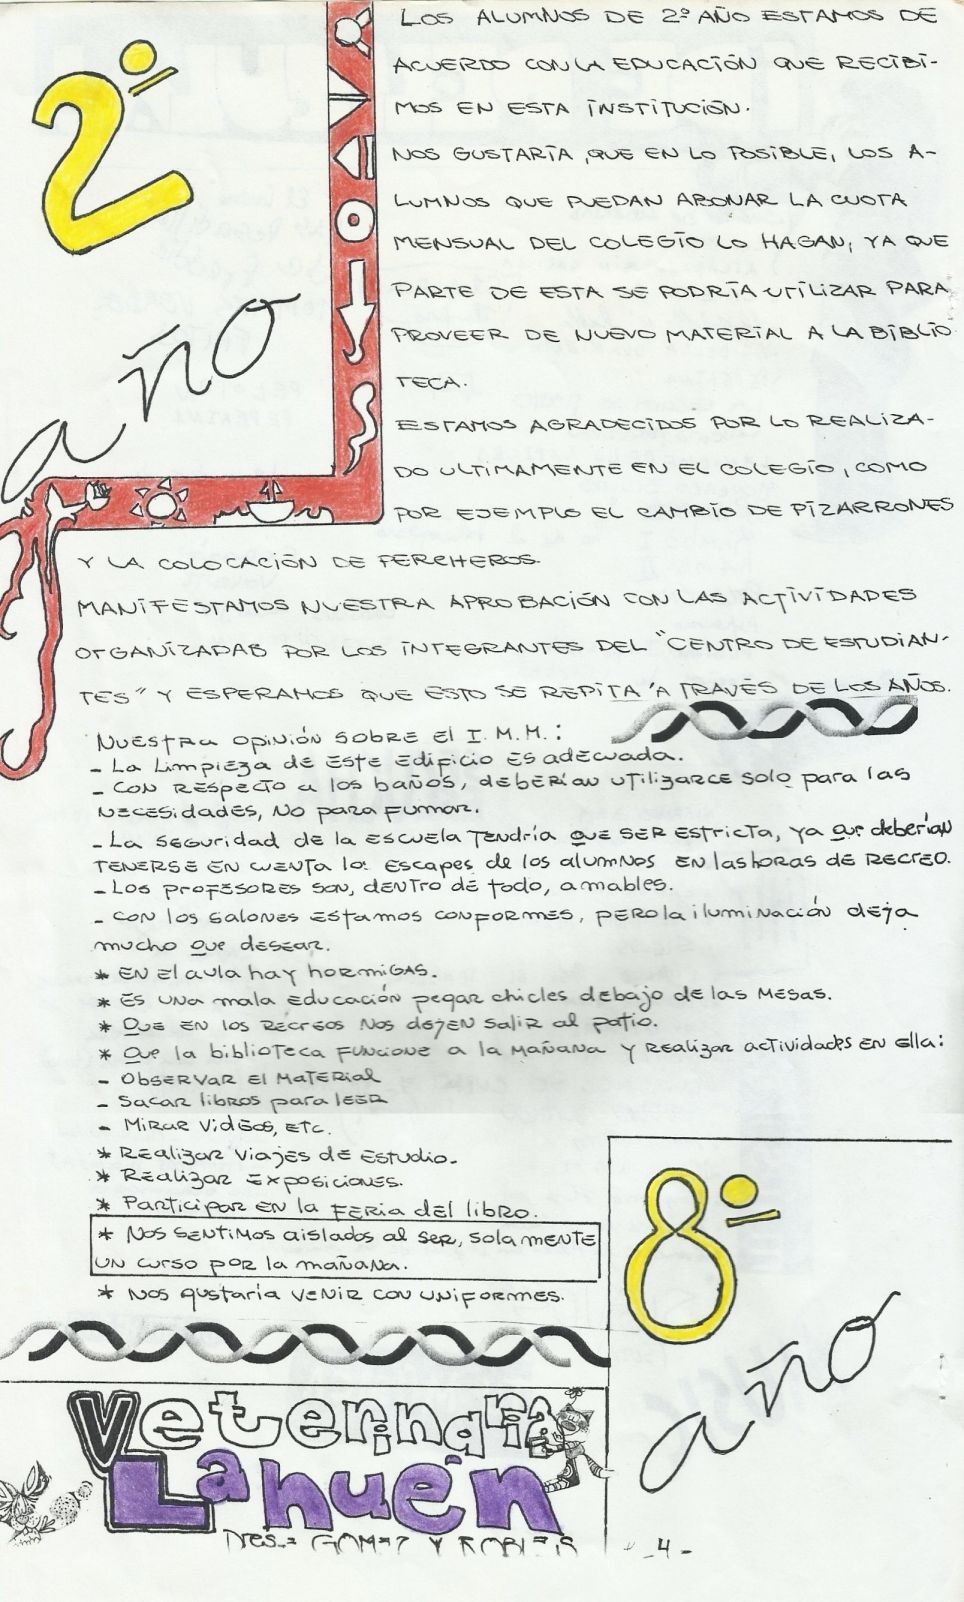 2º
año
LOS ALUMNOS DE 2º AÑO ESTAMOS DE
ACUERDO CON LA EDUCACIÓN QUE RECIBI-
MOS EN ESTA INSTITUCIÓN.
NOS GUSTARÍA, QUE EN LO POSIBLE, LOS A-
LUMNOS QUE PUEDAN ABONAR LA CUOTA
MENSUAL DEL COLEGIO LO HAGAN, YA QUE
PARTE DE ESTA SE PODRÍA UTILIZAR PARA
PROVEER DE NUEVO MATERIAL A LA BIBLIO
TECA.
ESTAMOS AGRADECIDOS POR LO REALIZA-
DO ULTIMAMENTE EN EL COLEGIO, COMO
POR EJEMPLO EL CAMBIO DE PIZARRONES
Y LA COLOCACIÓN DE PERCHEROS.
MANIFESTAMOS NUESTRA APROBACIÓN CON LAS ACTIVIDADES
ORGANIZADAS POR LOS INTEGRANTES DEL "CENTRO DE ESTUDIAN-
TES" Y ESPERAMOS QUE ESTO SE REPITA A TRAVÉS DE LOS AÑOS.
Nuestra opinión sobre el I.M.M.:
- La limpieza de este edificio es adecuada.
- Con respecto a los baños, deberían utilizarce solo para las
necesidades, no para fumar.
- La seguridad de la escuela tendría que ser estricta, ya que deberían
tenerse en cuenta los escapes de los alumnos en las horas de recreo.
- Los profesores son, dentro de todo, amables.
- Con los salones estamos conformes, pero la iluminación deja
mucho que desear.
* En el aula hay hormigas.
* Es una mala educación pegar chicles debajo de las mesas.
* Que en los recreos nos dejen salir al patio.
* Que la biblioteca funcione a la mañana y realizar actividades en ella:
- Observar el material
- Sacar libros para leer
- Mirar videos, etc.
* Realizar viajes de estudio.
* Realizar exposiciones.
* Participar en la feria del libro.
* Nos sentimos aislados al ser, solamente
un curso por la mañana.
* Nos gustaría venir con uniformes.
8º
año
Veterinaria
Lahuén
Dres. GOMEZ Y ROBLES
-4-